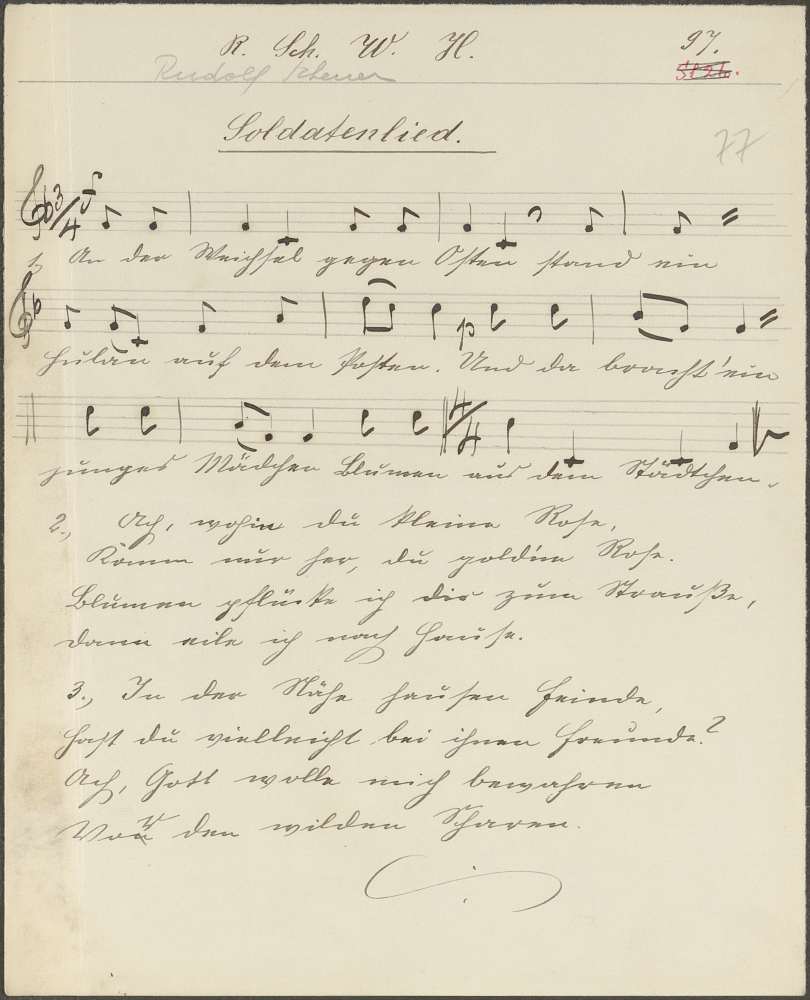 R. Sch. W. H. 97.
Rudolf
Soldatenlied.
77
3/4
1., An der Weichsel gegen Osten stand ein
Hulan auf dem Posten. Und da bracht' ein
p
4/4
junges Mädchen Blumen aus dem Städtchen.
2., Ach, wohin du kleine Rose,
Komm nur her, du gold'ne Rose.
Blumen pflückte ich dir zum Strauße,
dann eile ich nach Hause.
3., In der Nähe hausen Feinde,
Hast du vielleicht bei ihnen Freunde?
Ach, Gott wolle mich bewahren
Vor den wilden Scharen.